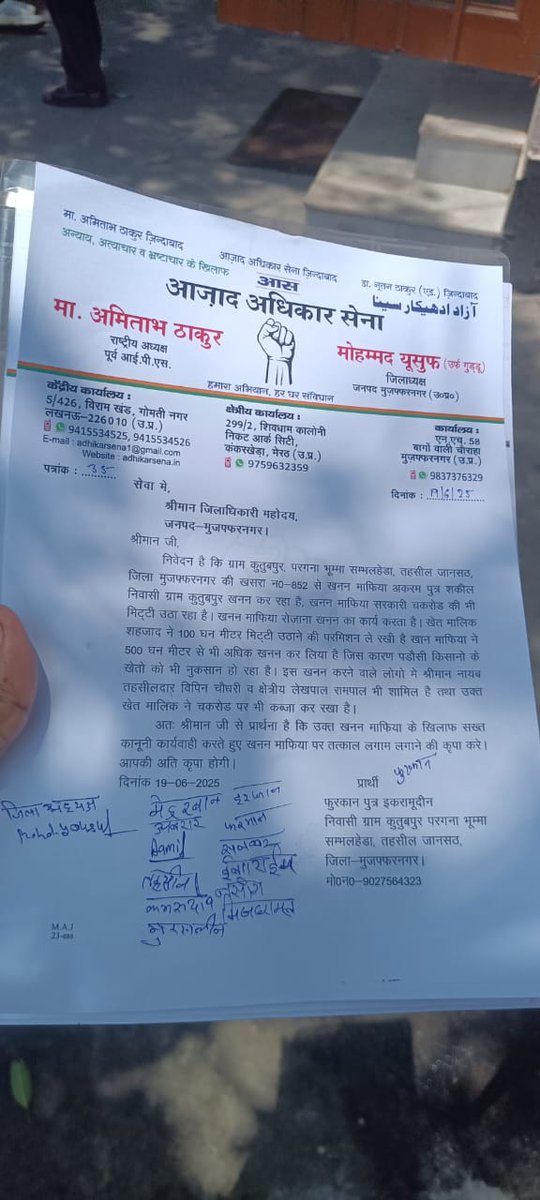 मा. अमिताभ ठाकुर ज़िन्दाबाद
आज़ाद अधिकार सेना ज़िन्दाबाद
डा. नूतन ठाकुर (एड.) ज़िन्दाबाद
अन्याय, अत्याचार व भ्रष्टाचार के ख़िलाफ
आस
آزاد ادھیکار سینا
आज़ाद अधिकार सेना
मा. अमिताभ ठाकुर
राष्ट्रीय अध्यक्ष
पूर्व आई.पी.एस.
मोहम्मद यूसुफ (उर्फ गुड्डू)
जिलाध्यक्ष
जनपद मुज़फ्फरनगर (उ०प्र०)
हमारा अभियान, हर घर संविधान
केंद्रीय कार्यालय :
5/426, विराम खंड, गोमती नगर
लखनऊ-226010 (उ.प्र.)
9415534525, 9415534526
E-mail : adhikarsena1@gmail.com
Website : adhikarsena.in
क्षेत्रीय कार्यालय :
299/2, शिवधाम कालोनी
निकट आर्क सिटी,
कंकरखेड़ा, मेरठ (उ.प्र.)
9759632359
कार्यालय :
एन.एच. 58
बागो वाली चौराहा
मुज़फ्फरनगर (उ.प्र.)
9837376329
पत्रांक : 35
दिनांक : 19/6/25
सेवा मे,
श्रीमान जिलाधिकारी महोदय,
जनपद-मुजफ्फरनगर।
श्रीमान जी,
निवेदन है कि ग्राम कुतुबपुर, परगना भूम्मा सम्भलहेडा, तहसील जानसठ,
जिला मुजफ्फरनगर की खसरा न0-852 से खनन माफिया अकरम पुत्र शकील
निवासी ग्राम कुतुबपुर खनन कर रहा है, खनन माफिया सरकारी चकरोड की भी
मिट्टी उठा रहा है। खनन माफिया रोजाना खनन का कार्य करता है। खेत मालिक
शहजाद ने 100 घन मीटर मिट्टी उठाने की परमिशन ले रखी है खान माफिया ने
500 घन मीटर से भी अधिक खनन कर लिया है जिस कारण पडौसी किसानो के
खेतो को भी नुकसान हो रहा है। इस खनन करने वाले लोगो मे श्रीमान नायब
तहसीलदार विपिन चौधरी व क्षेत्रीय लेखपाल रामपाल भी शामिल है तथा उक्त
खेत मालिक ने चकरोड पर भी कब्जा कर रखा है।
अतः श्रीमान जी से प्रार्थना है कि उक्त खनन माफिया के खिलाफ सख्त
कानूनी कार्यवाही करते हुए खनन माफिया पर तत्काल लगाम लगाने की कृपा करे।
आपकी अति कृपा होगी।
दिनांक 19-06-2025
प्रार्थी
फुरकान
फुरकान पुत्र इकरामूदीन
निवासी ग्राम कुतुबपुर परगना भूम्मा
सम्भलहेडा, तहसील जानसठ,
जिला-मुजफ्फरनगर।
मो0न0-9027564323
जिला अध्यक्ष
M.A.J